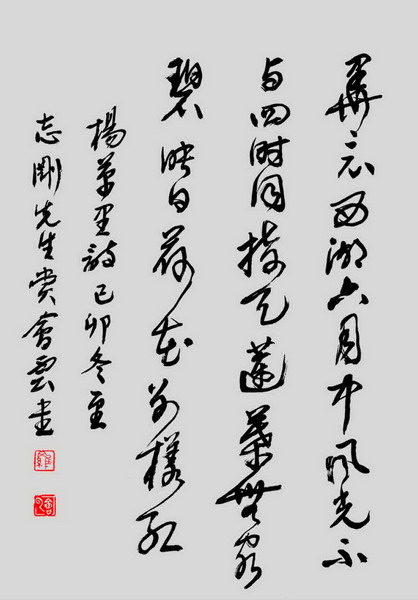 畢竟西湖六月中风光不
与四时同接天蓮葉無窮
碧映日荷花别樣红
楊萬里詩己卯冬至
志剛先生赏會雲書